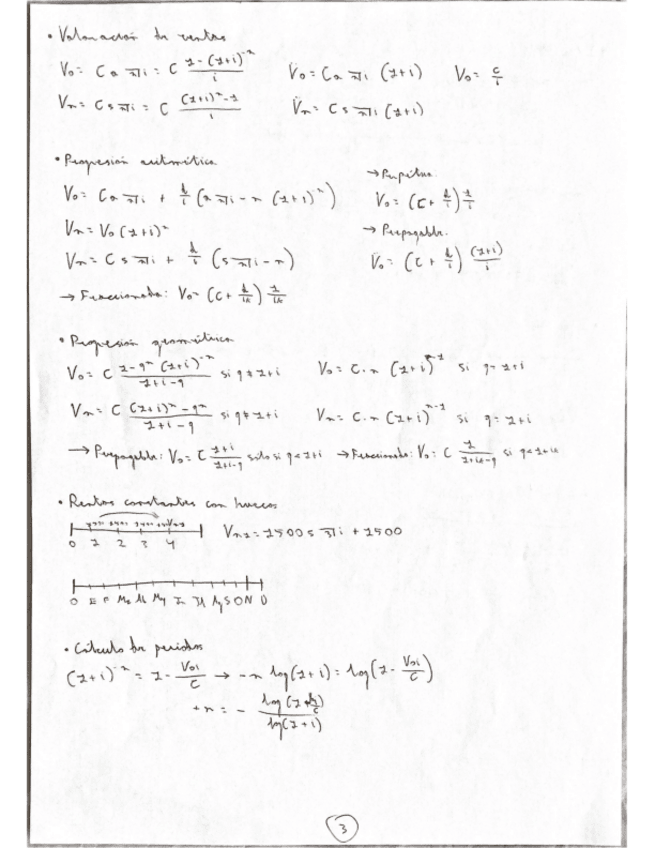 • Valoración de rentas
V₀ = C a n̅|i = C (1-(1+i)^-n)/i    V̈₀ = C a n̅|i (1+i)    V₀ = C/i
Vn = C s n̅|i = C ((1+i)^n - 1)/i    V̈n = C s n̅|i (1+i)
• Progresión aritmética
V₀ = C a n̅|i + d/i (a n̅|i - n (1+i)^-n)
→ Perpetua:
V₀ = (C + d/i) 1/i
Vn = V₀ (1+i)^n
→ Prepagable:
Vn = C s n̅|i + d/i (s n̅|i - n)
V̈₀ = (C + d/i) (1+i)/i
→ Fraccionada: V₀ = (C + d/ik) 1/ik
• Progresión geométrica
V₀ = C (1-q^n (1+i)^-n)/(1+i-q) si q ≠ 1+i    V₀ = C·n (1+i)^-1 si q = 1+i
Vn = C ((1+i)^n - q^n)/(1+i-q) si q ≠ 1+i    Vn = C·n (1+i)^n-1 si q = 1+i
→ Prepagable: V₀ = C (1+i)/(1+i-q) solo si q < 1+i → Fraccionada: V₀ = C 1/(1+ik-q) si q < 1+ik
• Rentas constantes con huecos
0 1 2 3 4    = 1500 s n̅|i + 1500
0 E F Mz Al My Jn Jl Ag S O N D
• Cálculo de periodos
(1+i)^-n = 1 - V₀i/C → -n log(1+i) = log(1 - V₀i/C)
+n = -
log(1+i)
3